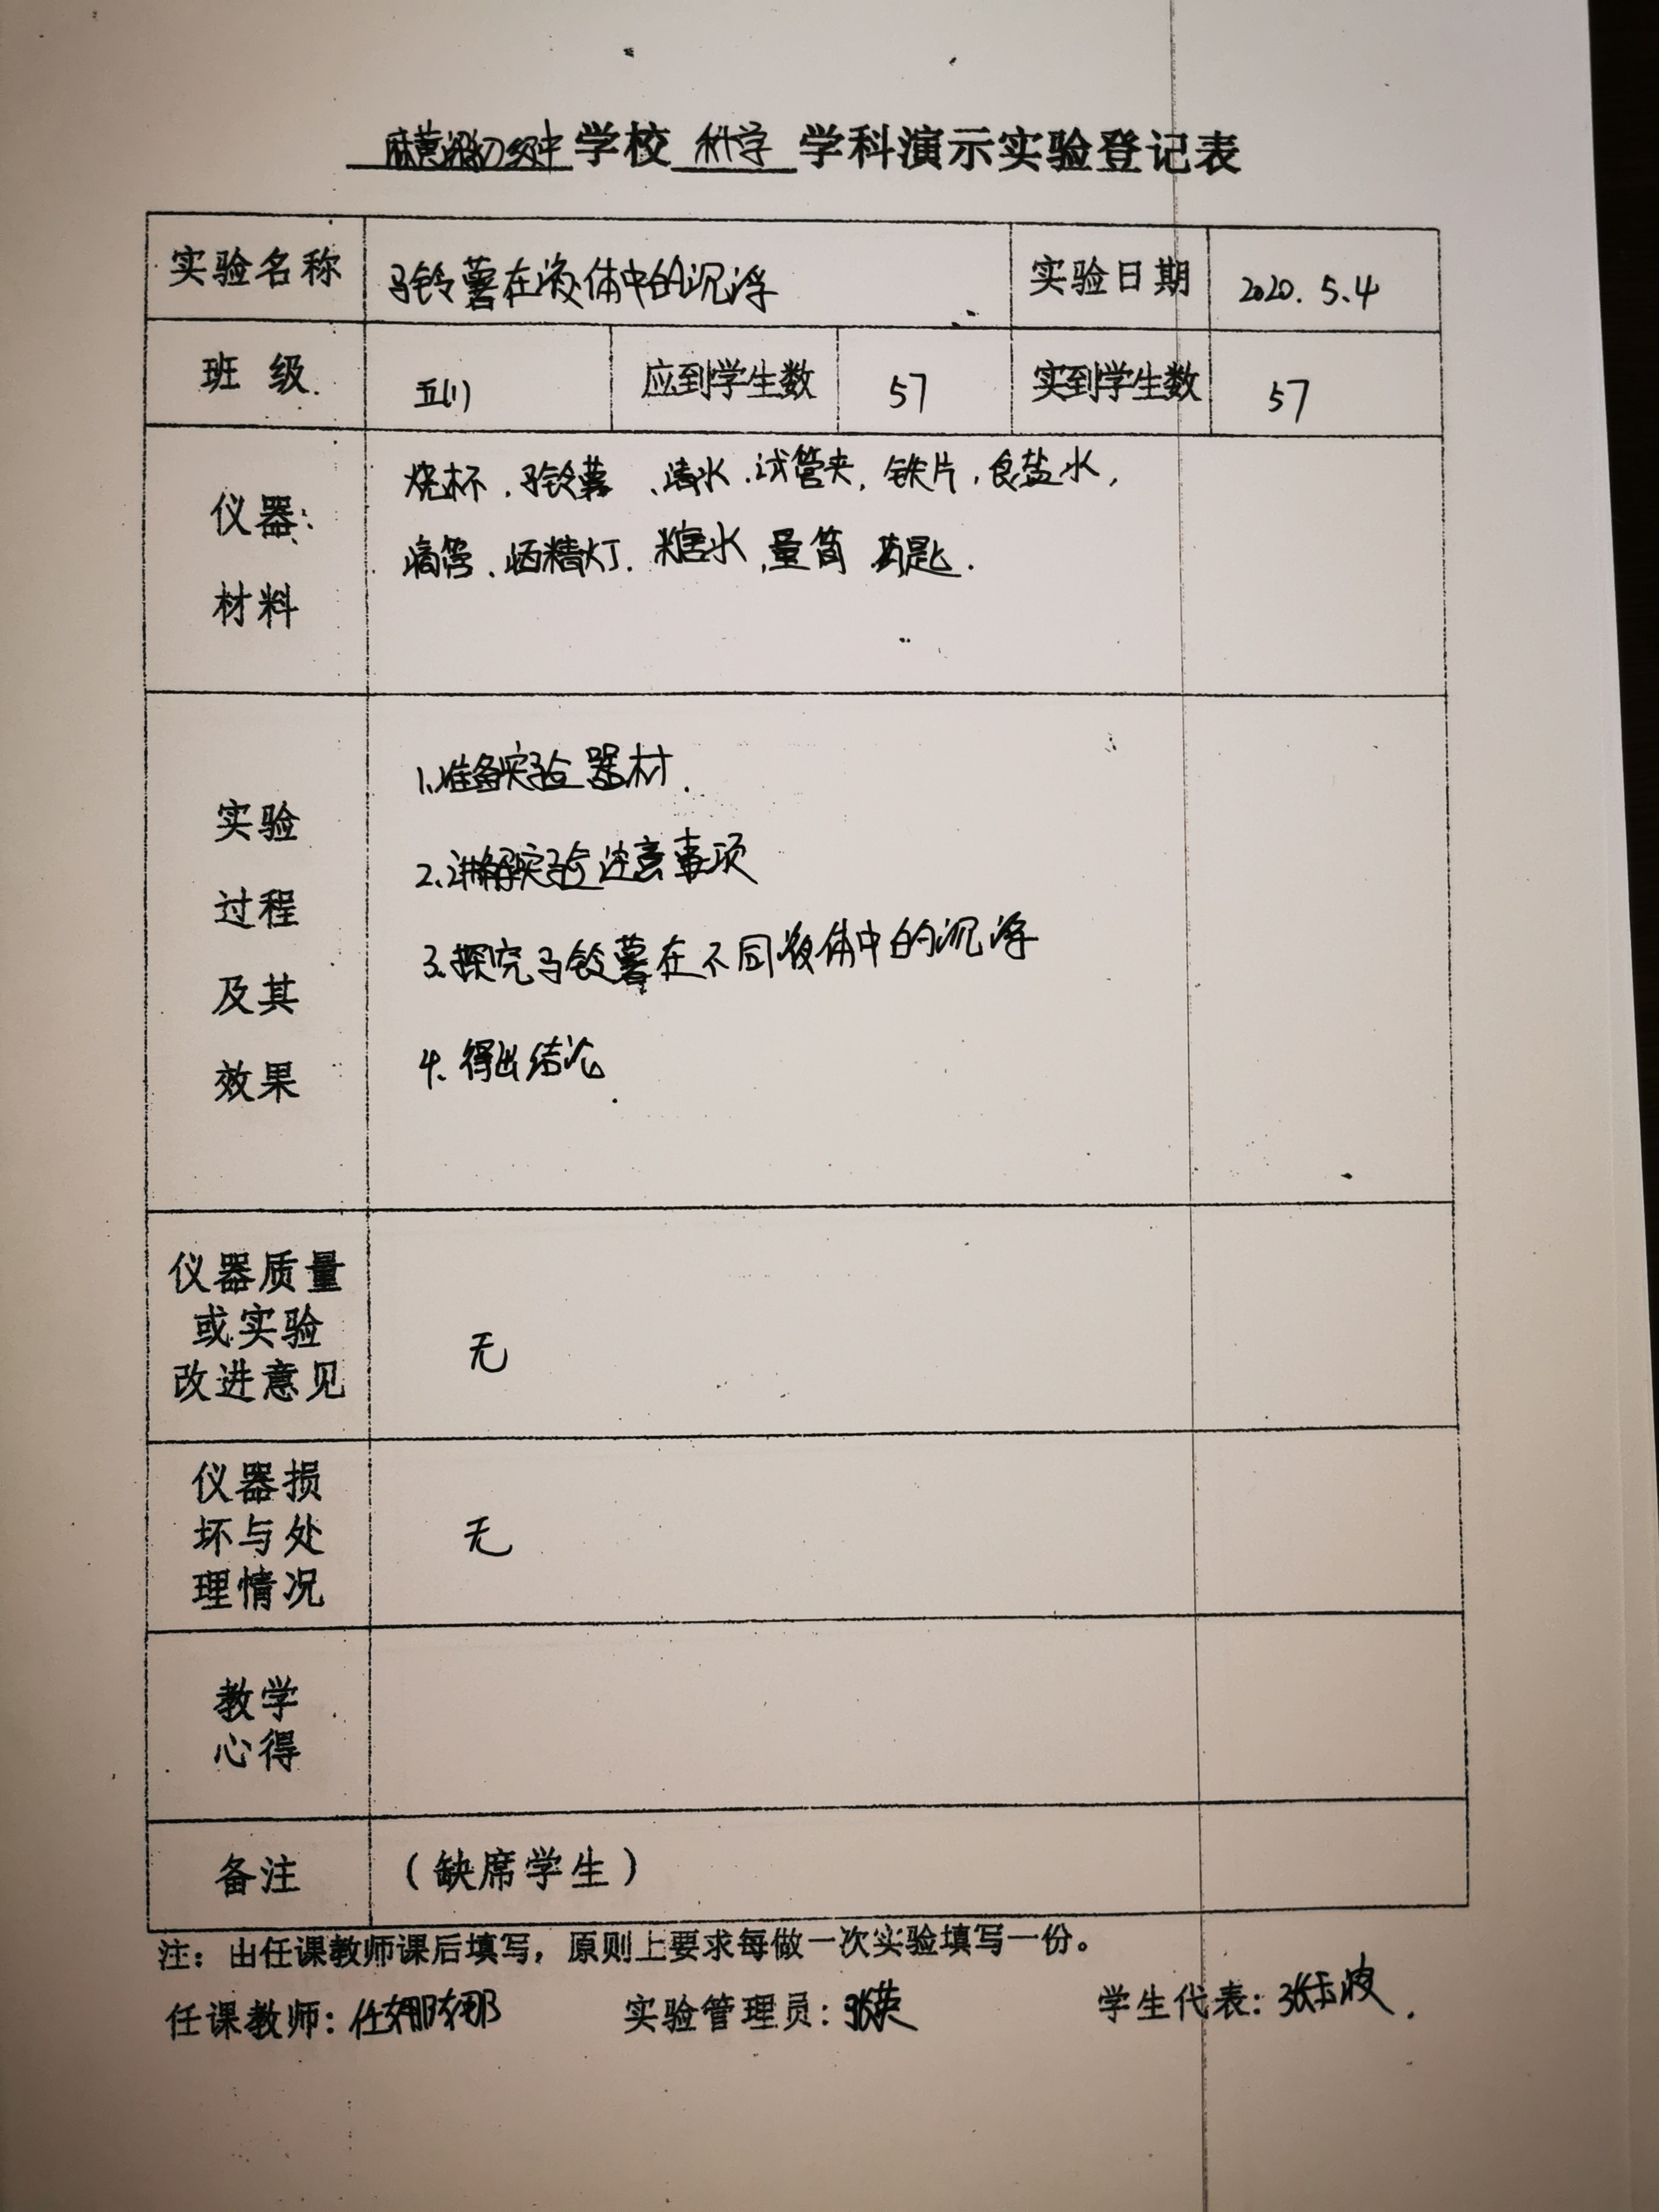 麻黄梁初级中学校 科学 学科演示实验登记表
实验名称 马铃薯在液体中的沉浮 实验日期 2020.5.4
班级 五(1) 应到学生数 57 实到学生数 57
仪器
材料
烧杯、马铃薯、清水、试管夹、铁片、食盐水,
滴管、酒精灯、糖水、量筒 药匙.
实验
过程
及其
效果
1、准备实验器材.
2、讲解实验注意事项
3、探究马铃薯在不同液体中的沉浮
4、得出结论
仪器质量
或实验
改进意见
无
仪器损
坏与处
理情况
无
教学
心得
备注 (缺席学生)
注：由任课教师课后填写，原则上要求每做一次实验填写一份。
任课教师: 任娜娜 实验管理员: 张英 学生代表: 张玉波